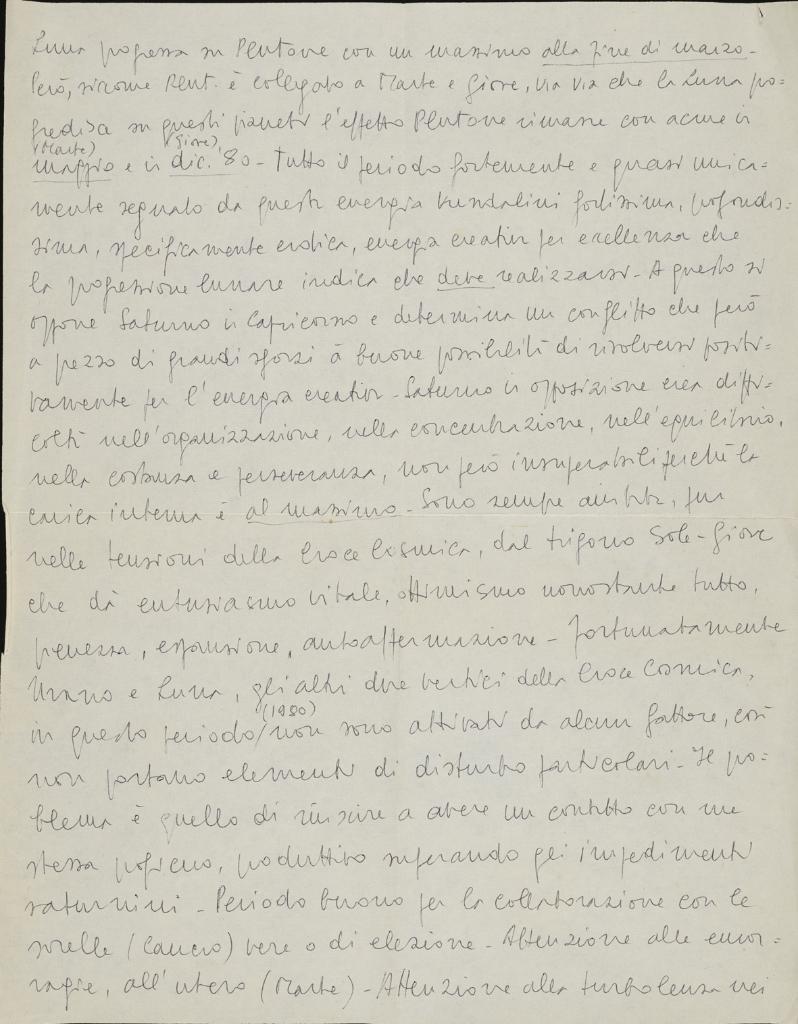 Luna progressa su Plutone con un massimo alla fine di marzo -
Però, siccome Plut. è collegato a Marte e Giove, via via che la Luna pro=
gredisce su questi pianeti l'effetto Plutone rimane con acme in
(Marte) (Giove)
maggio e in dic. 80 - Tutto il periodo fortemente e quasi unica=
mente segnato da questa energia Kundalini fortissima, profondis=
sima, specificamente erotica, energia creativa per excellenza che
la progressione lunare indica che deve realizzarsi - A questo si
oppone Saturno in Capricorno e determina un conflitto che però
a prezzo di grandi sforzi à buone possibilità di risolversi positi=
vamente per l'energia creativa - Saturno in opposizione crea diffi=
coltà nell'organizzazione, nella concentrazione, nell'equilibrio,
nella costanza e perseveranza, non però insuperabili perché la
carica interna è al massimo - Sono sempre aiutata, pur
nelle tensioni della Croce Cosmica, dal trigono Sole-Giove
che dà entusiasmo vitale, ottimismo nonostante tutto,
pienezza, espansione, autoaffermazione - Fortunatamente
Urano e Luna, gli altri due vertici della Croce Cosmica,
(1980)
in questo periodo/non sono attivati da alcun fattore, così
non portano elementi di disturbo particolari - Il pro=
blema è quello di riuscire a avere un contatto con me
stessa proficuo, produttivo superando gli impedimenti
saturnini - Periodo buono per la collaborazione con le
sorelle (Cancro) vere o di elezione - Attenzione alle emor=
ragie, all'utero (Marte) - Attenzione alla turbolenza nei